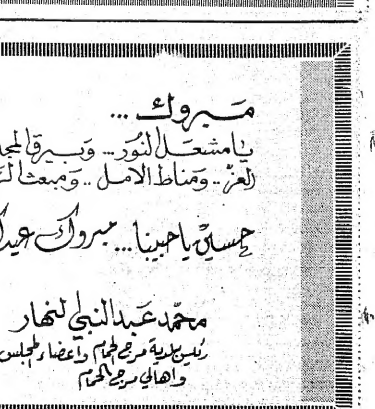 مبروك ...
يا مشعل النور .. وبيرق المجد
العز .. ومناط الامل .. ومبعث
حسين يا حبيبنا ... مبروك عيدك
محمد عبد النبي النهار
رئيس بلدية مرج الحمام واعضاء المجلس
واهالي مرج الحمام